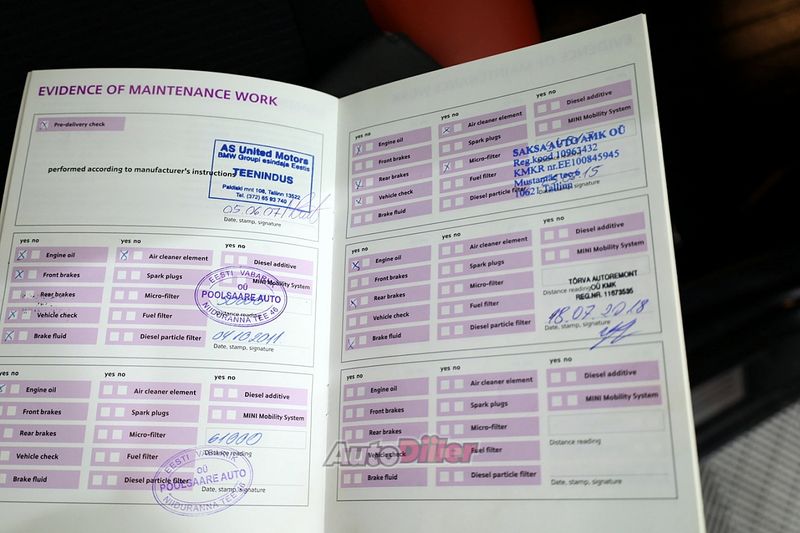 EVIDENCE OF MAINTENANCE WORK
Pre-delivery check
performed according to manufacturer's instructions
AS United Motors
BMW Groupi esindaja Eestis
TEENINDUS
Paldiski mnt 108, Tallinn 13522
Tel. (372) 65 93 740
05.06.07
Date, stamp, signature
yes no
yes no
yes no
Engine oil
Air cleaner element
Diesel additive
Front brakes
Spark plugs
MINI Mobility System
Rear brakes
Micro-filter
Vehicle check
Fuel filter
Distance reading
Brake fluid
Diesel particle filter
EESTI VABARIIK
OÜ
POOLSAARE AUTO
NIIDURANNA TEE 46
04.10.2011
Date, stamp, signature
yes no
yes no
Engine oil
Air cleaner element
Diesel additive
Front brakes
Spark plugs
MINI Mobility System
Rear brakes
Micro-filter
61000
Vehicle check
Fuel filter
Distance reading
Brake fluid
Diesel particle filter
EESTI VABARIIK
OÜ
POOLSAARE AUTO
NIIDURANNA TEE 46
Date, stamp, signature
yes no
yes no
yes no
Engine oil
Air cleaner element
Diesel additive
Front brakes
Spark plugs
MINI Mobility System
Rear brakes
Micro-filter
Vehicle check
Fuel filter
Brake fluid
Diesel particle filter
SAKSA AUTO AMK OÜ
Reg.kood 10963432
KMKR nr.EE100845945
Mustamäe tee 6
10621 Tallinn
yes no
yes no
yes no
Engine oil
Air cleaner element
Diesel additive
Front brakes
Spark plugs
MINI Mobility System
Rear brakes
Micro-filter
Vehicle check
Fuel filter
Distance reading
Brake fluid
Diesel particle filter
TÕRVA AUTOREMONT
OÜ KMK
REG.NR. 11673595
18.07.2018
Date, stamp, signature
yes no
yes no
yes no
Engine oil
Air cleaner element
Diesel additive
Front brakes
Spark plugs
MINI Mobility System
Rear brakes
Micro-filter
Vehicle check
Fuel filter
Distance reading
Brake fluid
Diesel particle filter
Date, stamp, signature
AutoDiler